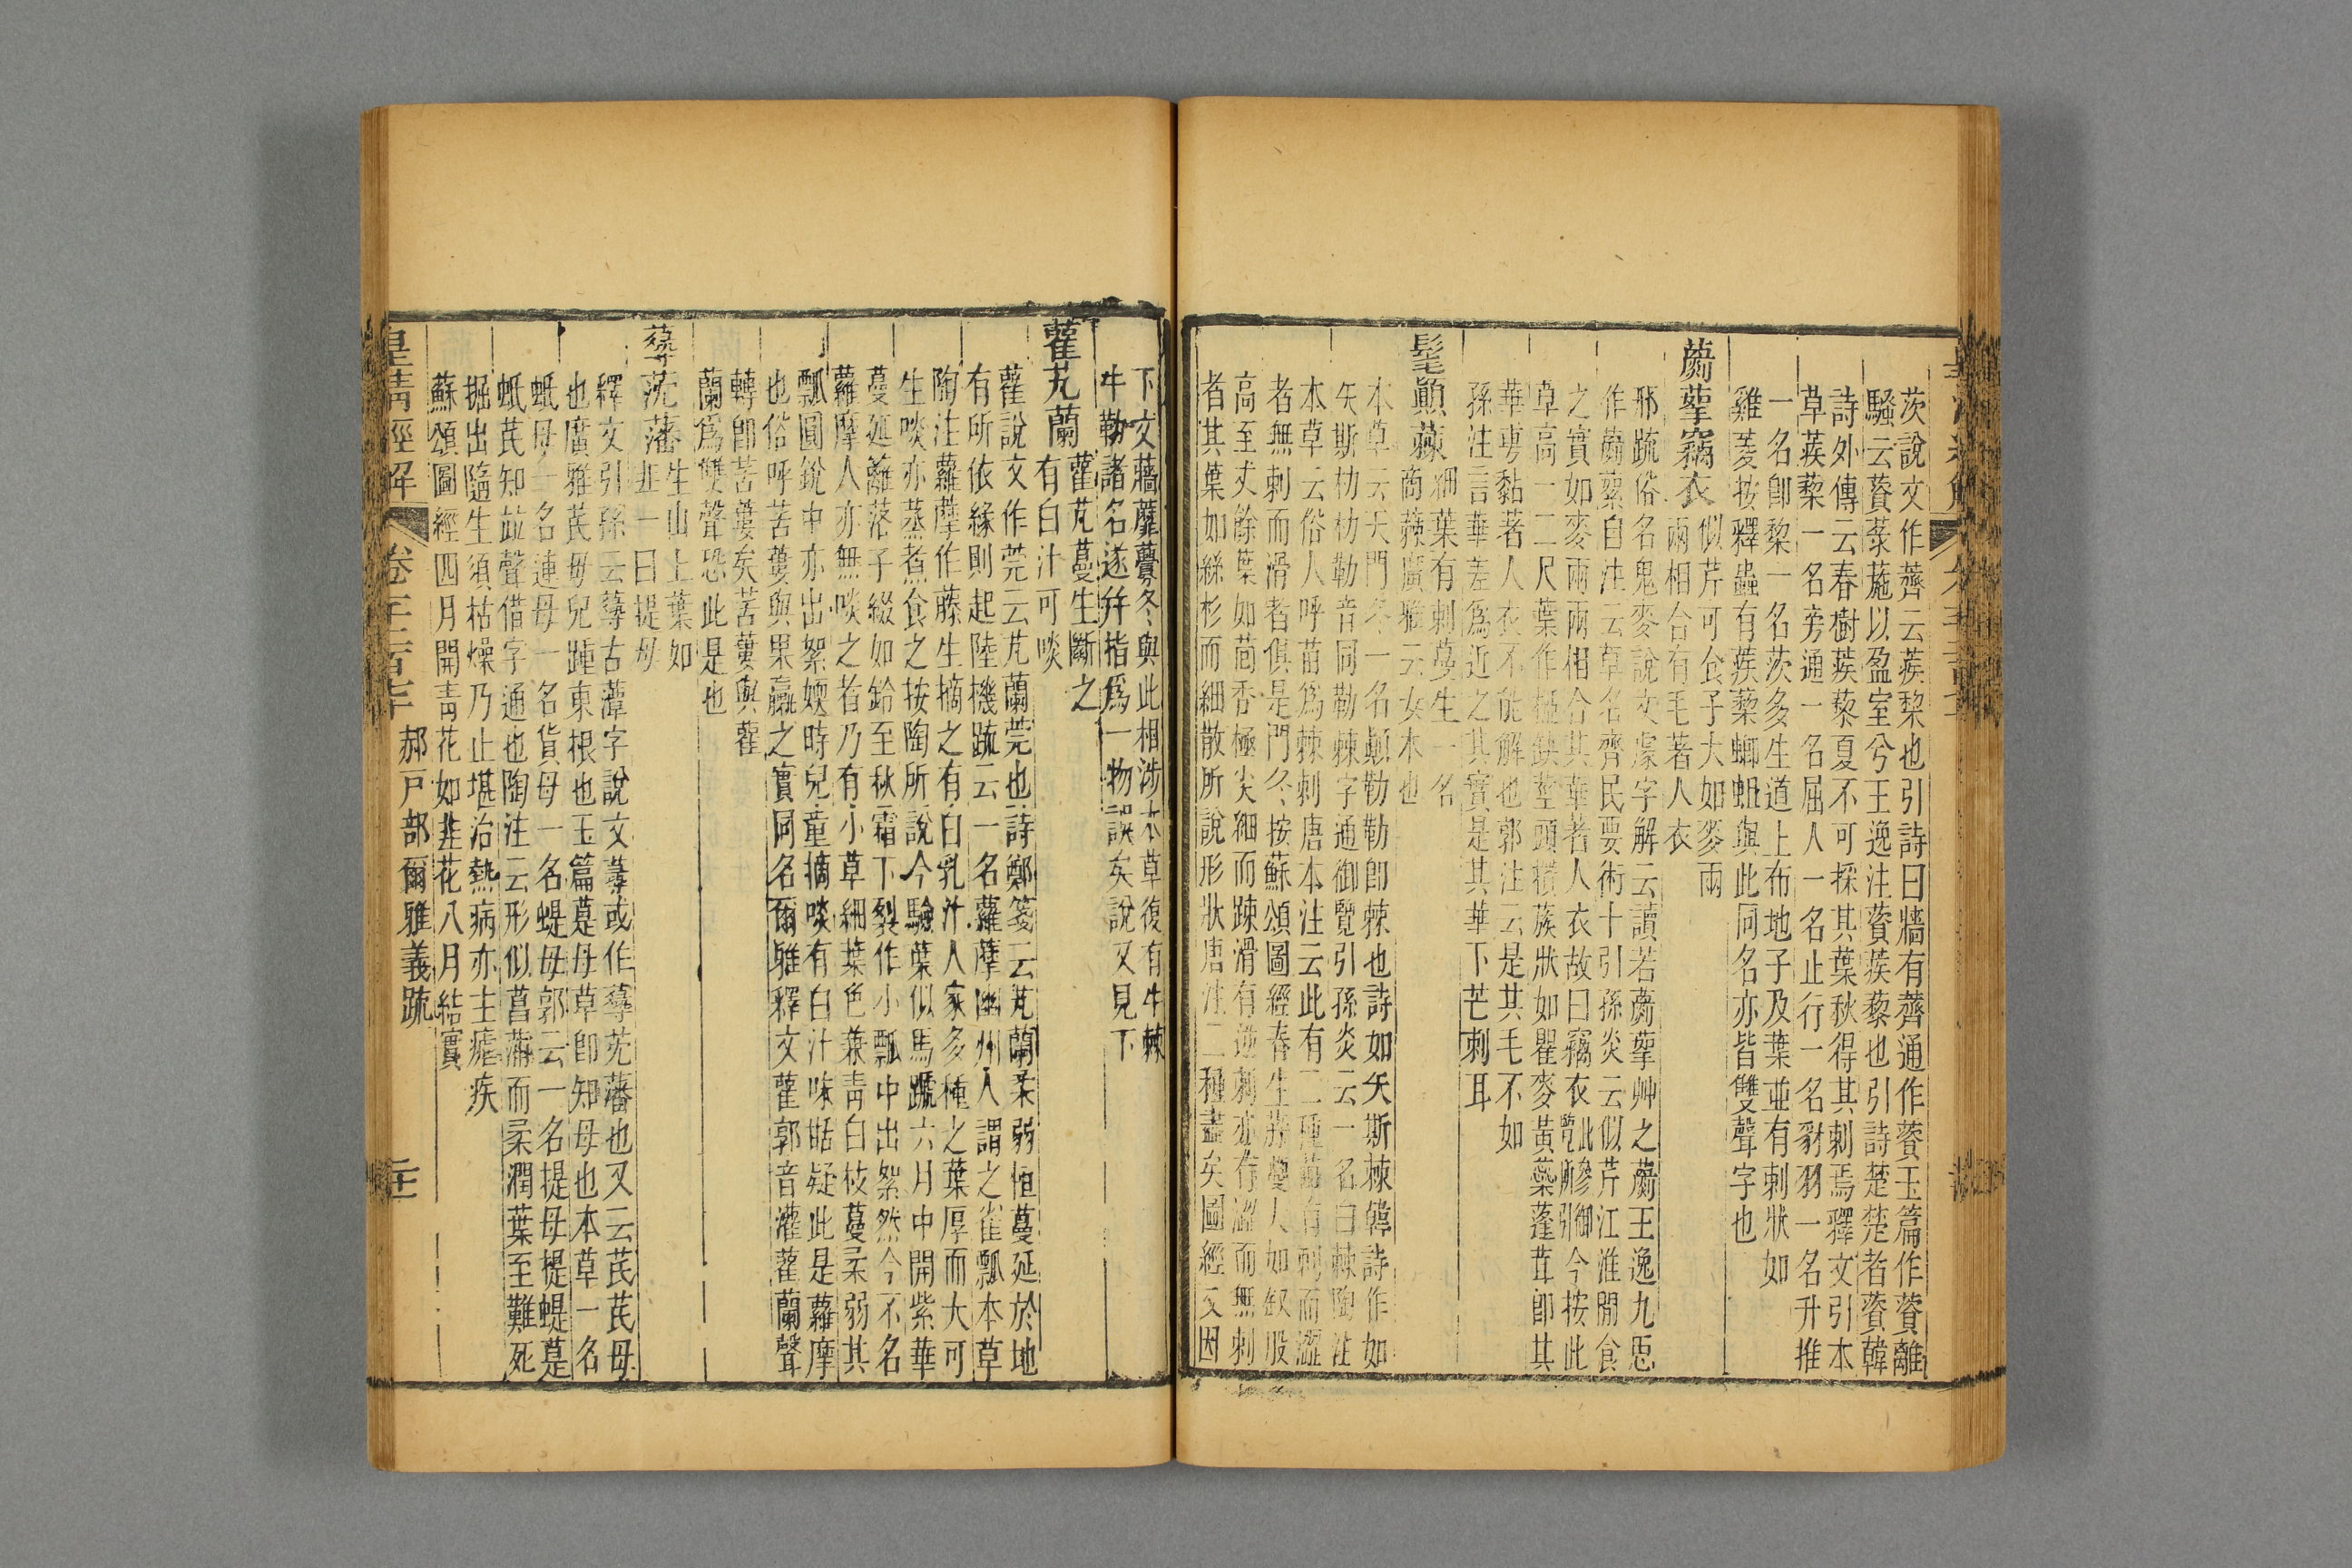 茨說文作薺云蒺棃也引詩曰牆有薺通作薋玉篇作薋離
騷云薋菉葹以盈室兮王逸注薋蒺藜也引詩楚楚者薋韓
詩外傳云春樹蒺藜夏不可採其葉秋得其刺焉釋文引本
草蒺藜一名旁通一名屈人一名止行一名豺羽一名升推
一名卽棃一名茨多生道上布地子及葉並有刺狀如
雞菱按釋蟲有蒺藜蝍蛆與此同名亦皆雙聲字也
蘮蒘竊衣
似芹可食子大如麥兩
兩相合有毛著人衣
邢疏俗名鬼麥說文㨖字解云讀若蘮蒘艸之蘮王逸九思
作蘮蒘自注云草名齊民要術十引孫炎云似芹江淮閒食
之實如麥兩兩相合其華著人衣故曰竊衣
此參御
覽所引
今按此
草高一二尺葉作椏缺莖頭攢蔟狀如瞿麥黃蘂蓬茸卽其
華専黏著人衣不能解也郭注云是其毛不如
孫注言華差爲近之其實是其華下芒刺耳
髦顚蕀
細葉有刺蔓生一名
商蕀廣雅云女木也
本草云天門冬一名顚勒勒卽棘也詩如矢斯棘韓詩作如
矢斯朸朸勒音同勒棘字通御覽引孫炎云一名白棘陶注
本草云俗人呼苗爲棘刺唐本注云此有二種苗有刺而澀
者無刺而滑者俱是門冬按蘇頌圖經春生藤蔓大如釵股
高至丈餘葉如茴香極尖細而疎滑有逆刺亦有澀而無刺
者其葉如絲杉而細散所說形狀唐注二種盡矣圖經又因
下文蘠蘼虋冬與此相涉本草復有牛棘
牛勒諸名遂并指爲一物誤矣說又見下
雚芄蘭
雚芄蔓生斷之
有白汁可啖
雚說文作莞云芄蘭莞也詩鄭箋云芄蘭柔弱恒蔓延於地
有所依緣則起陸機疏云一名蘿藦幽州人謂之雀瓢本草
陶注蘿藦作藤生摘之有白乳汁人家多種之葉厚而大可
生啖亦蒸煮食之按陶所說今驗葉似馬蹏六月中開紫華
蔓延籬落子綴如鈴至秋霜下裂作小瓢中出絮然今不名
蘿摩人亦無啖之者乃有小草細葉色兼青白枝蔓柔弱其
瓢圓銳中亦出絮嫰時兒童摘啖有白汁味甛疑此是蘿摩
也俗呼苦蔞與果臝之實同名爾雅釋文雚郭音灌雚蘭聲
轉卽苦蔞矣苦蔞與雚
蘭爲雙聲恐此是也
蕁莐藩
生山上葉如
韭一曰提母
釋文引孫云蕁古藫字說文蕁或作䕭莐藩也又云芪芪母
也廣雅芪母兒踵東根也玉篇莐母草卽知母也本草一名
蚔母一名連母一名貨母一名蝭母郭云一名提母提蝭莐
蚔芪知竝聲借字通也陶注云形似菖蒲而柔潤葉至難死
掘出隨生須枯燥乃止堪治熱病亦主瘧疾
蘇頌圖經四月開青花如韭花八月結實
皇清經解
卷千二百七十
郝戸部爾雅義疏